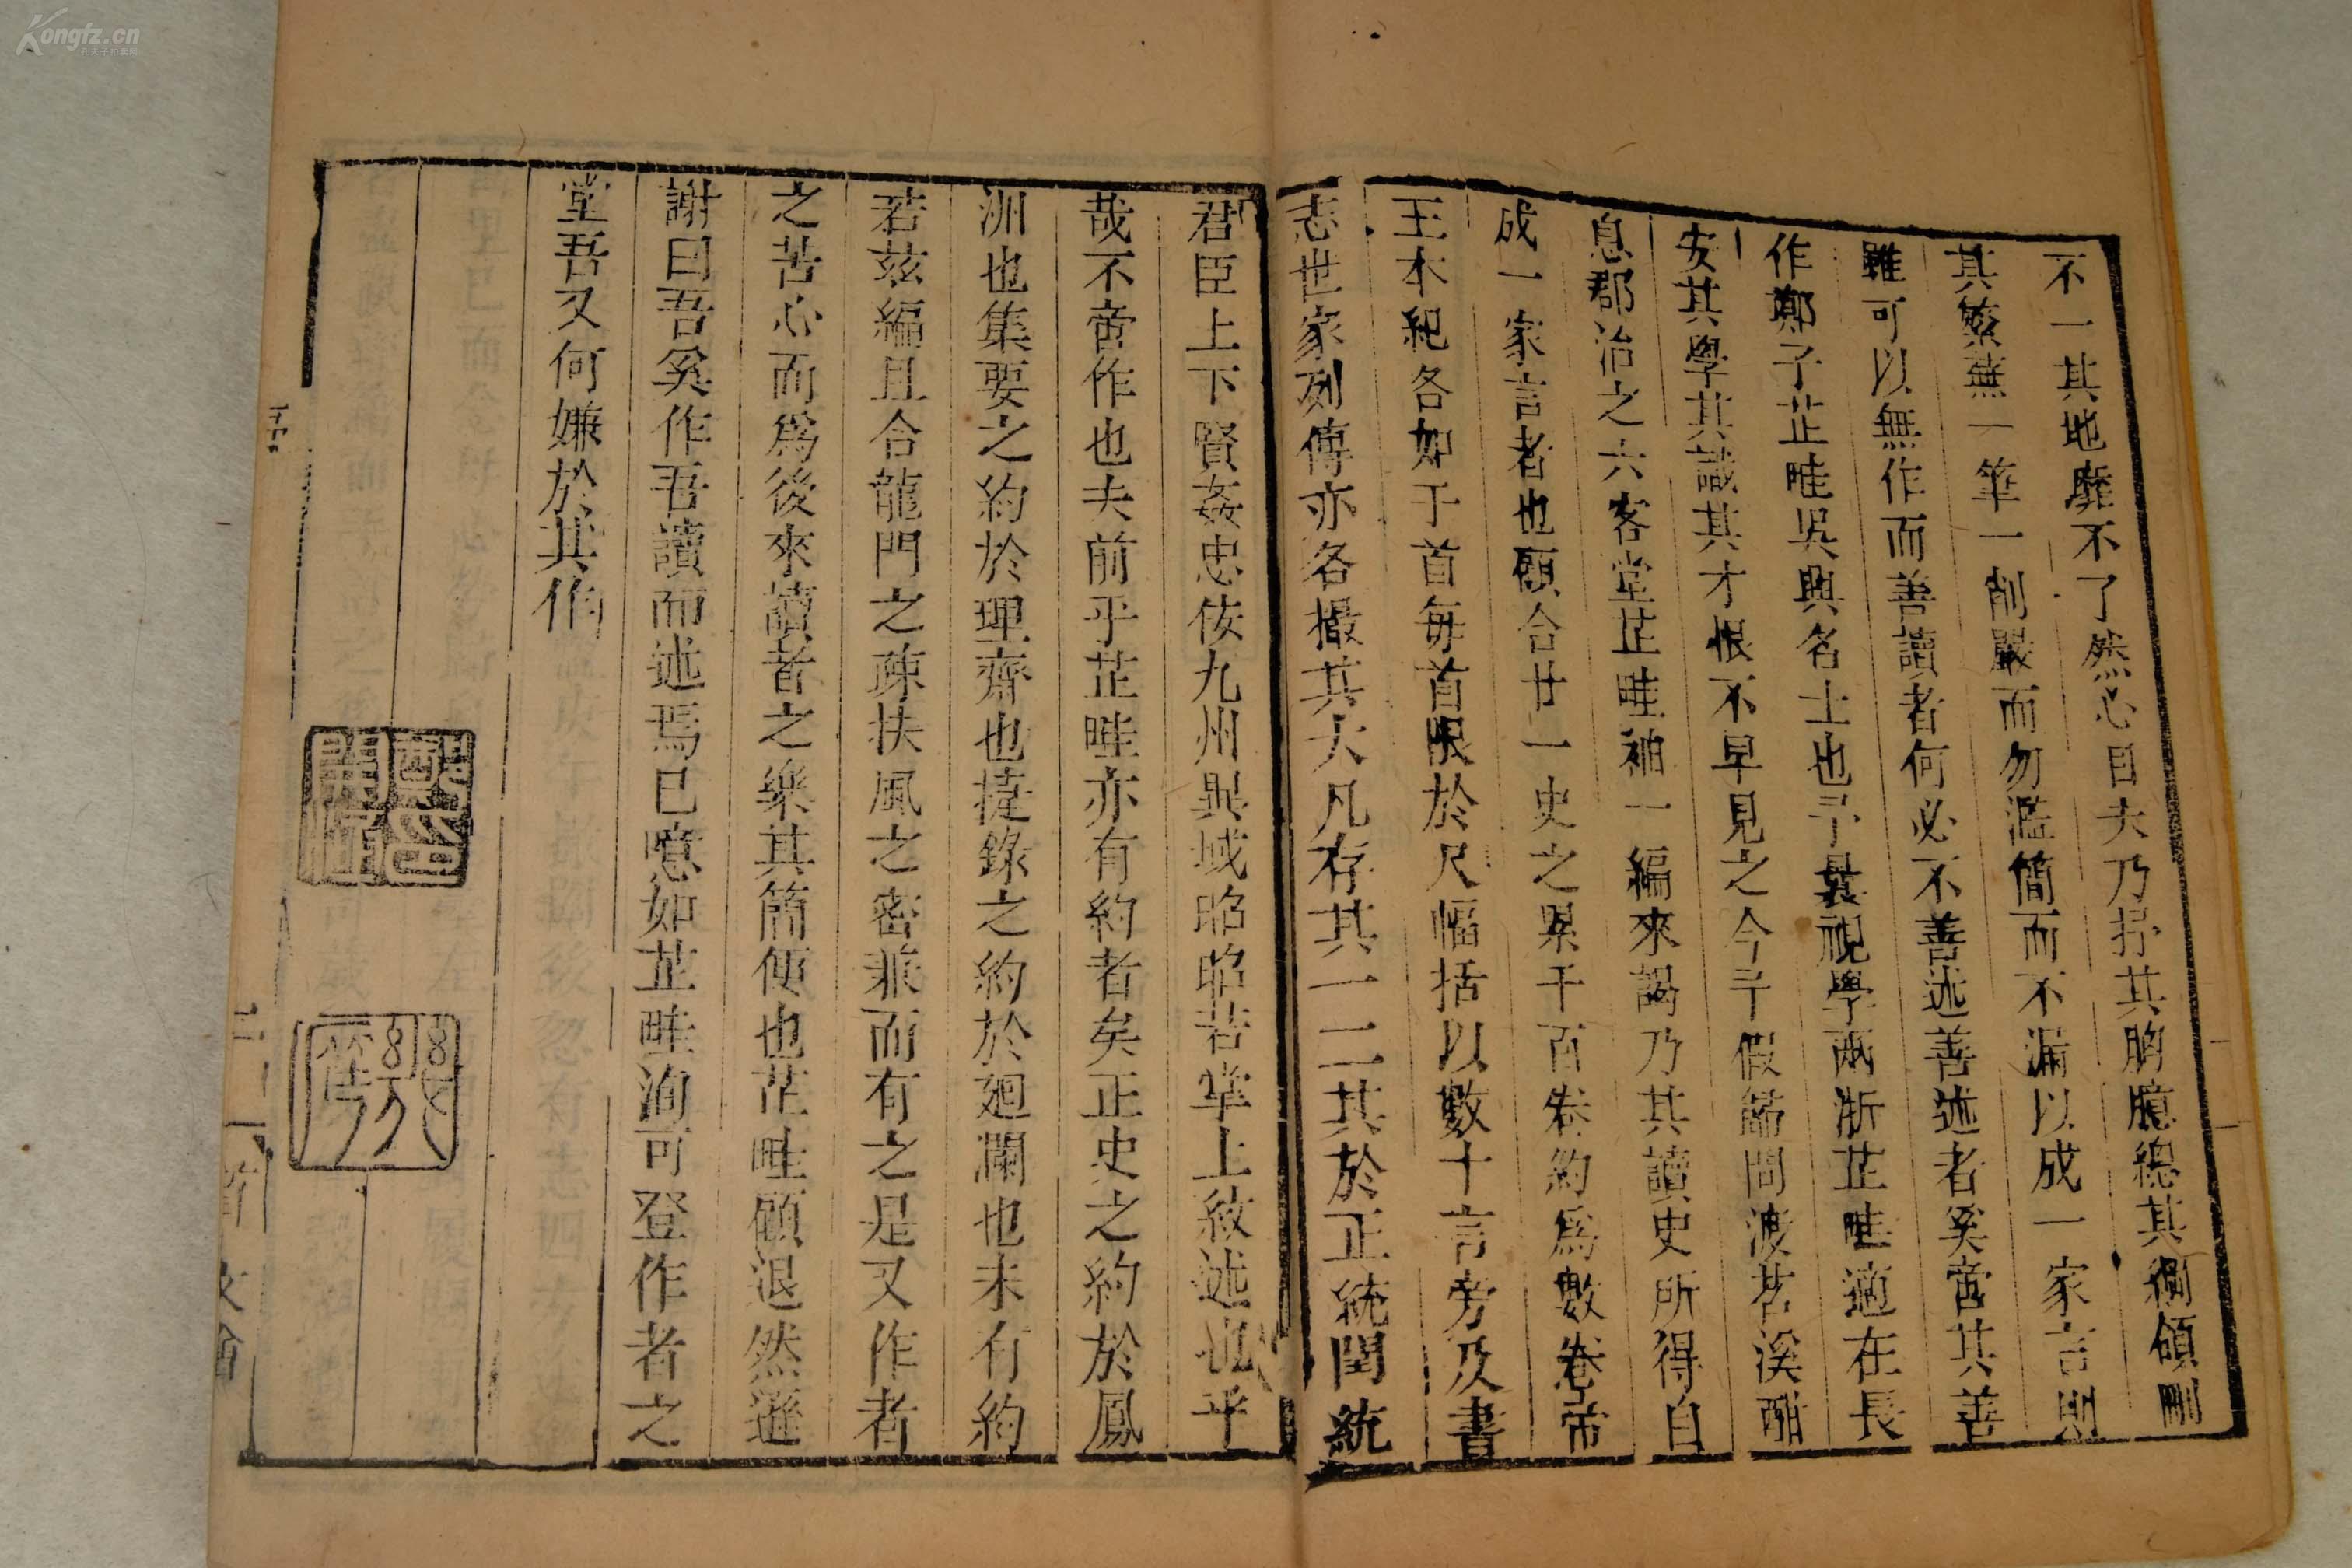 不一其地靡不了然心目夫乃抒其胸臆總其綱領刪
其繁蕪一筆一削嚴而勿濫簡而不漏以成一家言則
雖可以無作而善讀者何必不善述善述者奚啻其善
作鄭子芷畦吳興名士也予曩視學兩浙芷畦適在長
安其學其識其才恨不早見之今年假節問渡苕溪
息郡治之六客堂芷畦袖一編來謁乃其讀史所得自
成一家言者也顧合廿一史之累千百卷約爲數卷帝
王本紀各如干首每首限於尺幅括以數十言旁及書
志世家列傳亦各撮其大凡存其一二其於正統閏統
君臣上下賢姦忠佞九州異域昭昭若掌上紋述也乎
哉不啻作也夫前乎芷畦亦有約者矣正史之約於鳳
洲也集要之約於理齋也捷錄之約於廻瀾也未有約
若茲編且合龍門之疎扶風之密兼而有之是又作者
之苦心而爲後來讀者之樂其簡便也芷畦顧退然遜
謝曰吾奚作吾讀而述焉已噫如芷畦洵可登作者之
堂吾又何嫌於其作
Kongfz.cn